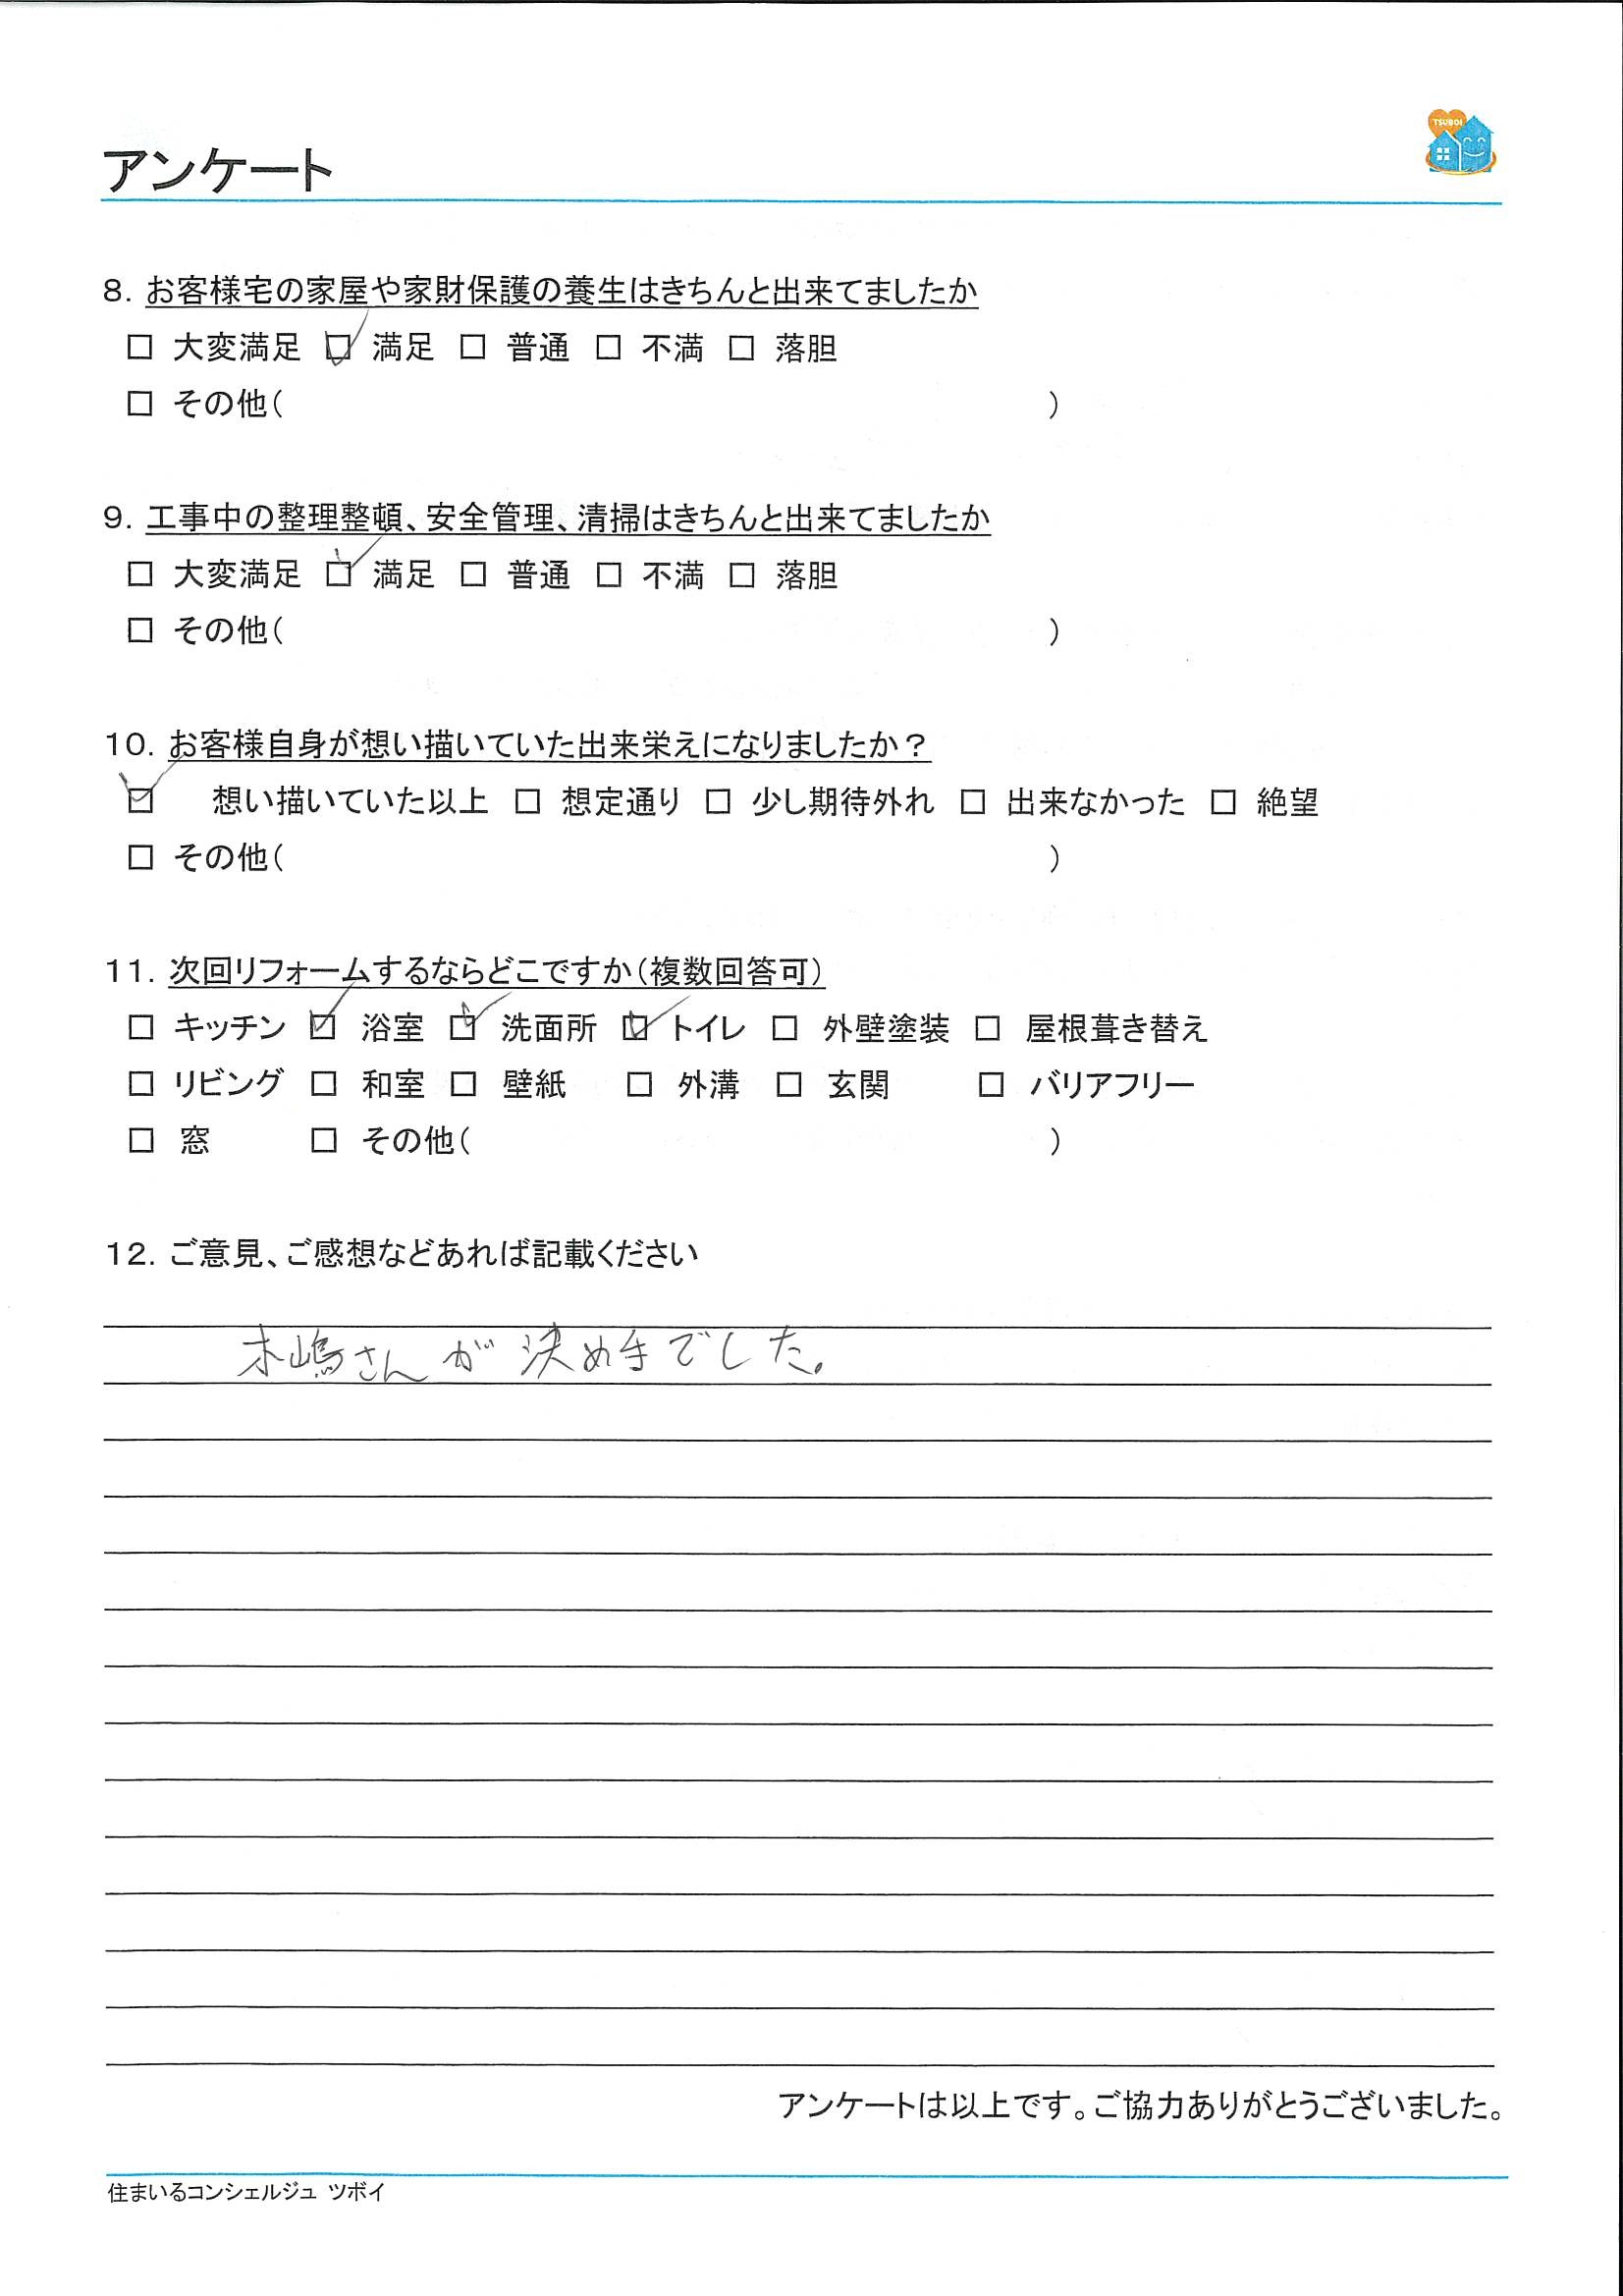 アンケート
TSUBOI
8. お客様宅の家屋や家財保護の養生はきちんと出来てましたか
☐ 大変満足 ☑ 満足 ☐ 普通 ☐ 不満 ☐ 落胆
☐ その他( )
9. 工事中の整理整頓、安全管理、清掃はきちんと出来てましたか
☐ 大変満足 ☑ 満足 ☐ 普通 ☐ 不満 ☐ 落胆
☐ その他( )
10. お客様自身が想い描いていた出来栄えになりましたか?
☑ 想い描いていた以上 ☐ 想定通り ☐ 少し期待外れ ☐ 出来なかった ☐ 絶望
☐ その他( )
11. 次回リフォームするならどこですか(複数回答可)
☐ キッチン ☑ 浴室 ☑ 洗面所 ☑ トイレ ☐ 外壁塗装 ☐ 屋根葺き替え
☐ リビング ☐ 和室 ☐ 壁紙 ☐ 外溝 ☐ 玄関 ☐ バリアフリー
☐ 窓 ☐ その他( )
12. ご意見、ご感想などあれば記載ください
木嶋さんが決め手でした。
アンケートは以上です。ご協力ありがとうございました。
住まいるコンシェルジュ ツボイ